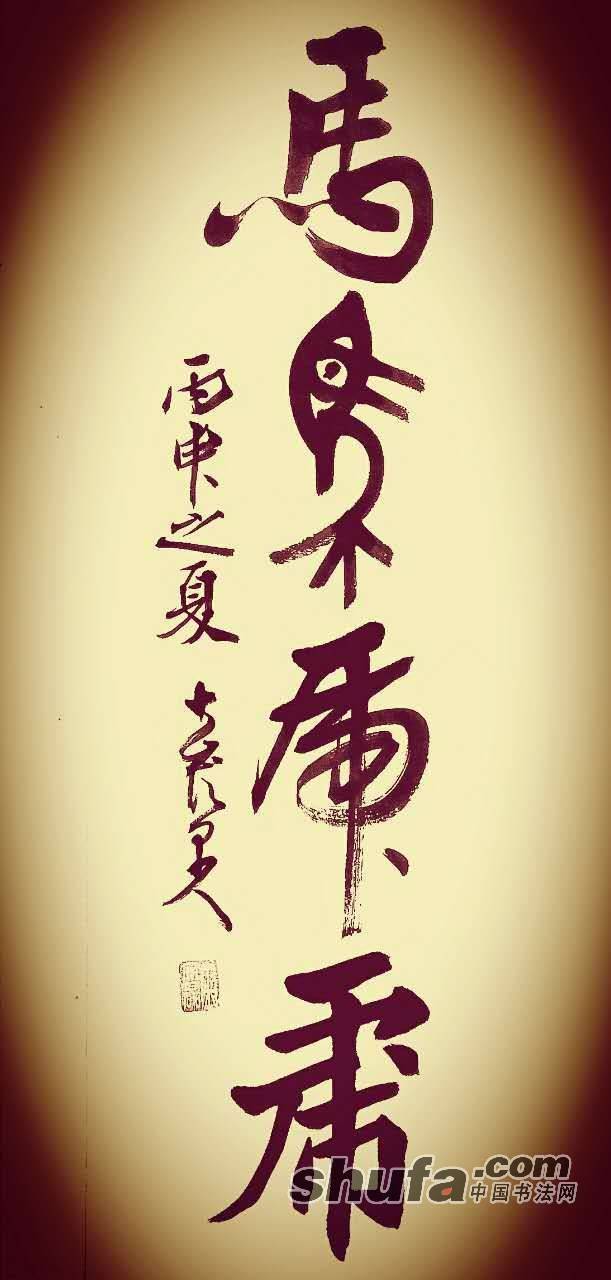 馬馬虎虎
丙申之夏
shufa.com
中国书法网